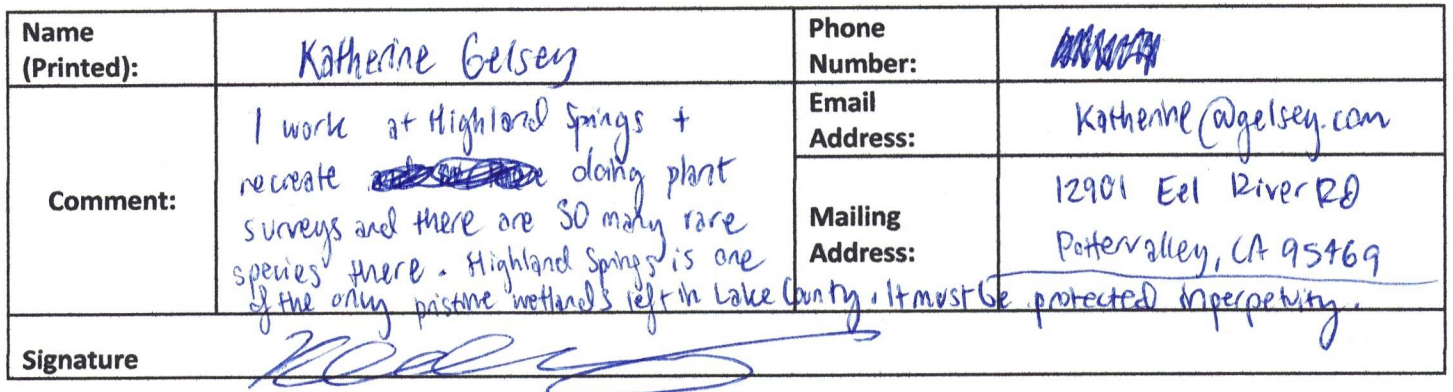 Name
(Printed):
Katherine Gelsey
Phone
Number:
Comment:
I work at Highland Springs +
recreate doing plant
surveys and there are SO many rare
species there. Highland Springs is one
of the only pristine wetlands left in Lake County. It must be protected inperpetuity.
Email
Address:
Katherine@gelsey.com
Mailing
Address:
12901 Eel River RD
Pottervalley, CA 95469
Signature